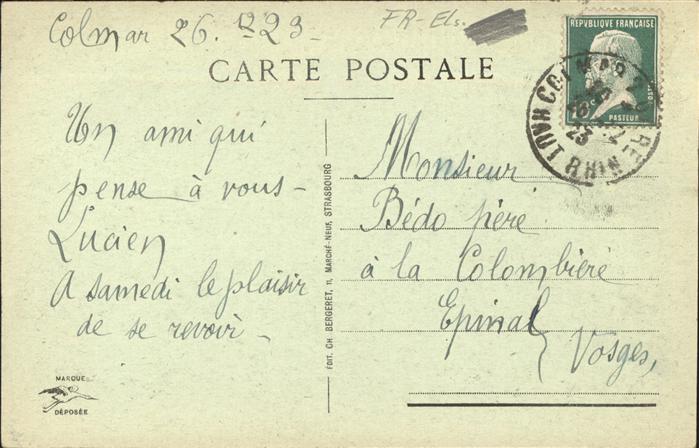 Colmar 26.12 23_
FR-Els.
CARTE POSTALE
Un ami qui
pense à vous_
Lucien
A samedi le plaisir
de se revoir_
MARQUE
DÉPOSÉE
ÉDIT. CH. BERGERET, 11, MARCHÉ-NEUF, STRASBOURG
RÉPUBLIQUE FRANÇAISE
POSTES
PASTEUR
COLMAR
HAUT RHIN
Monsieur
Bédo père
à la Colombière
Epinal
Vosges,